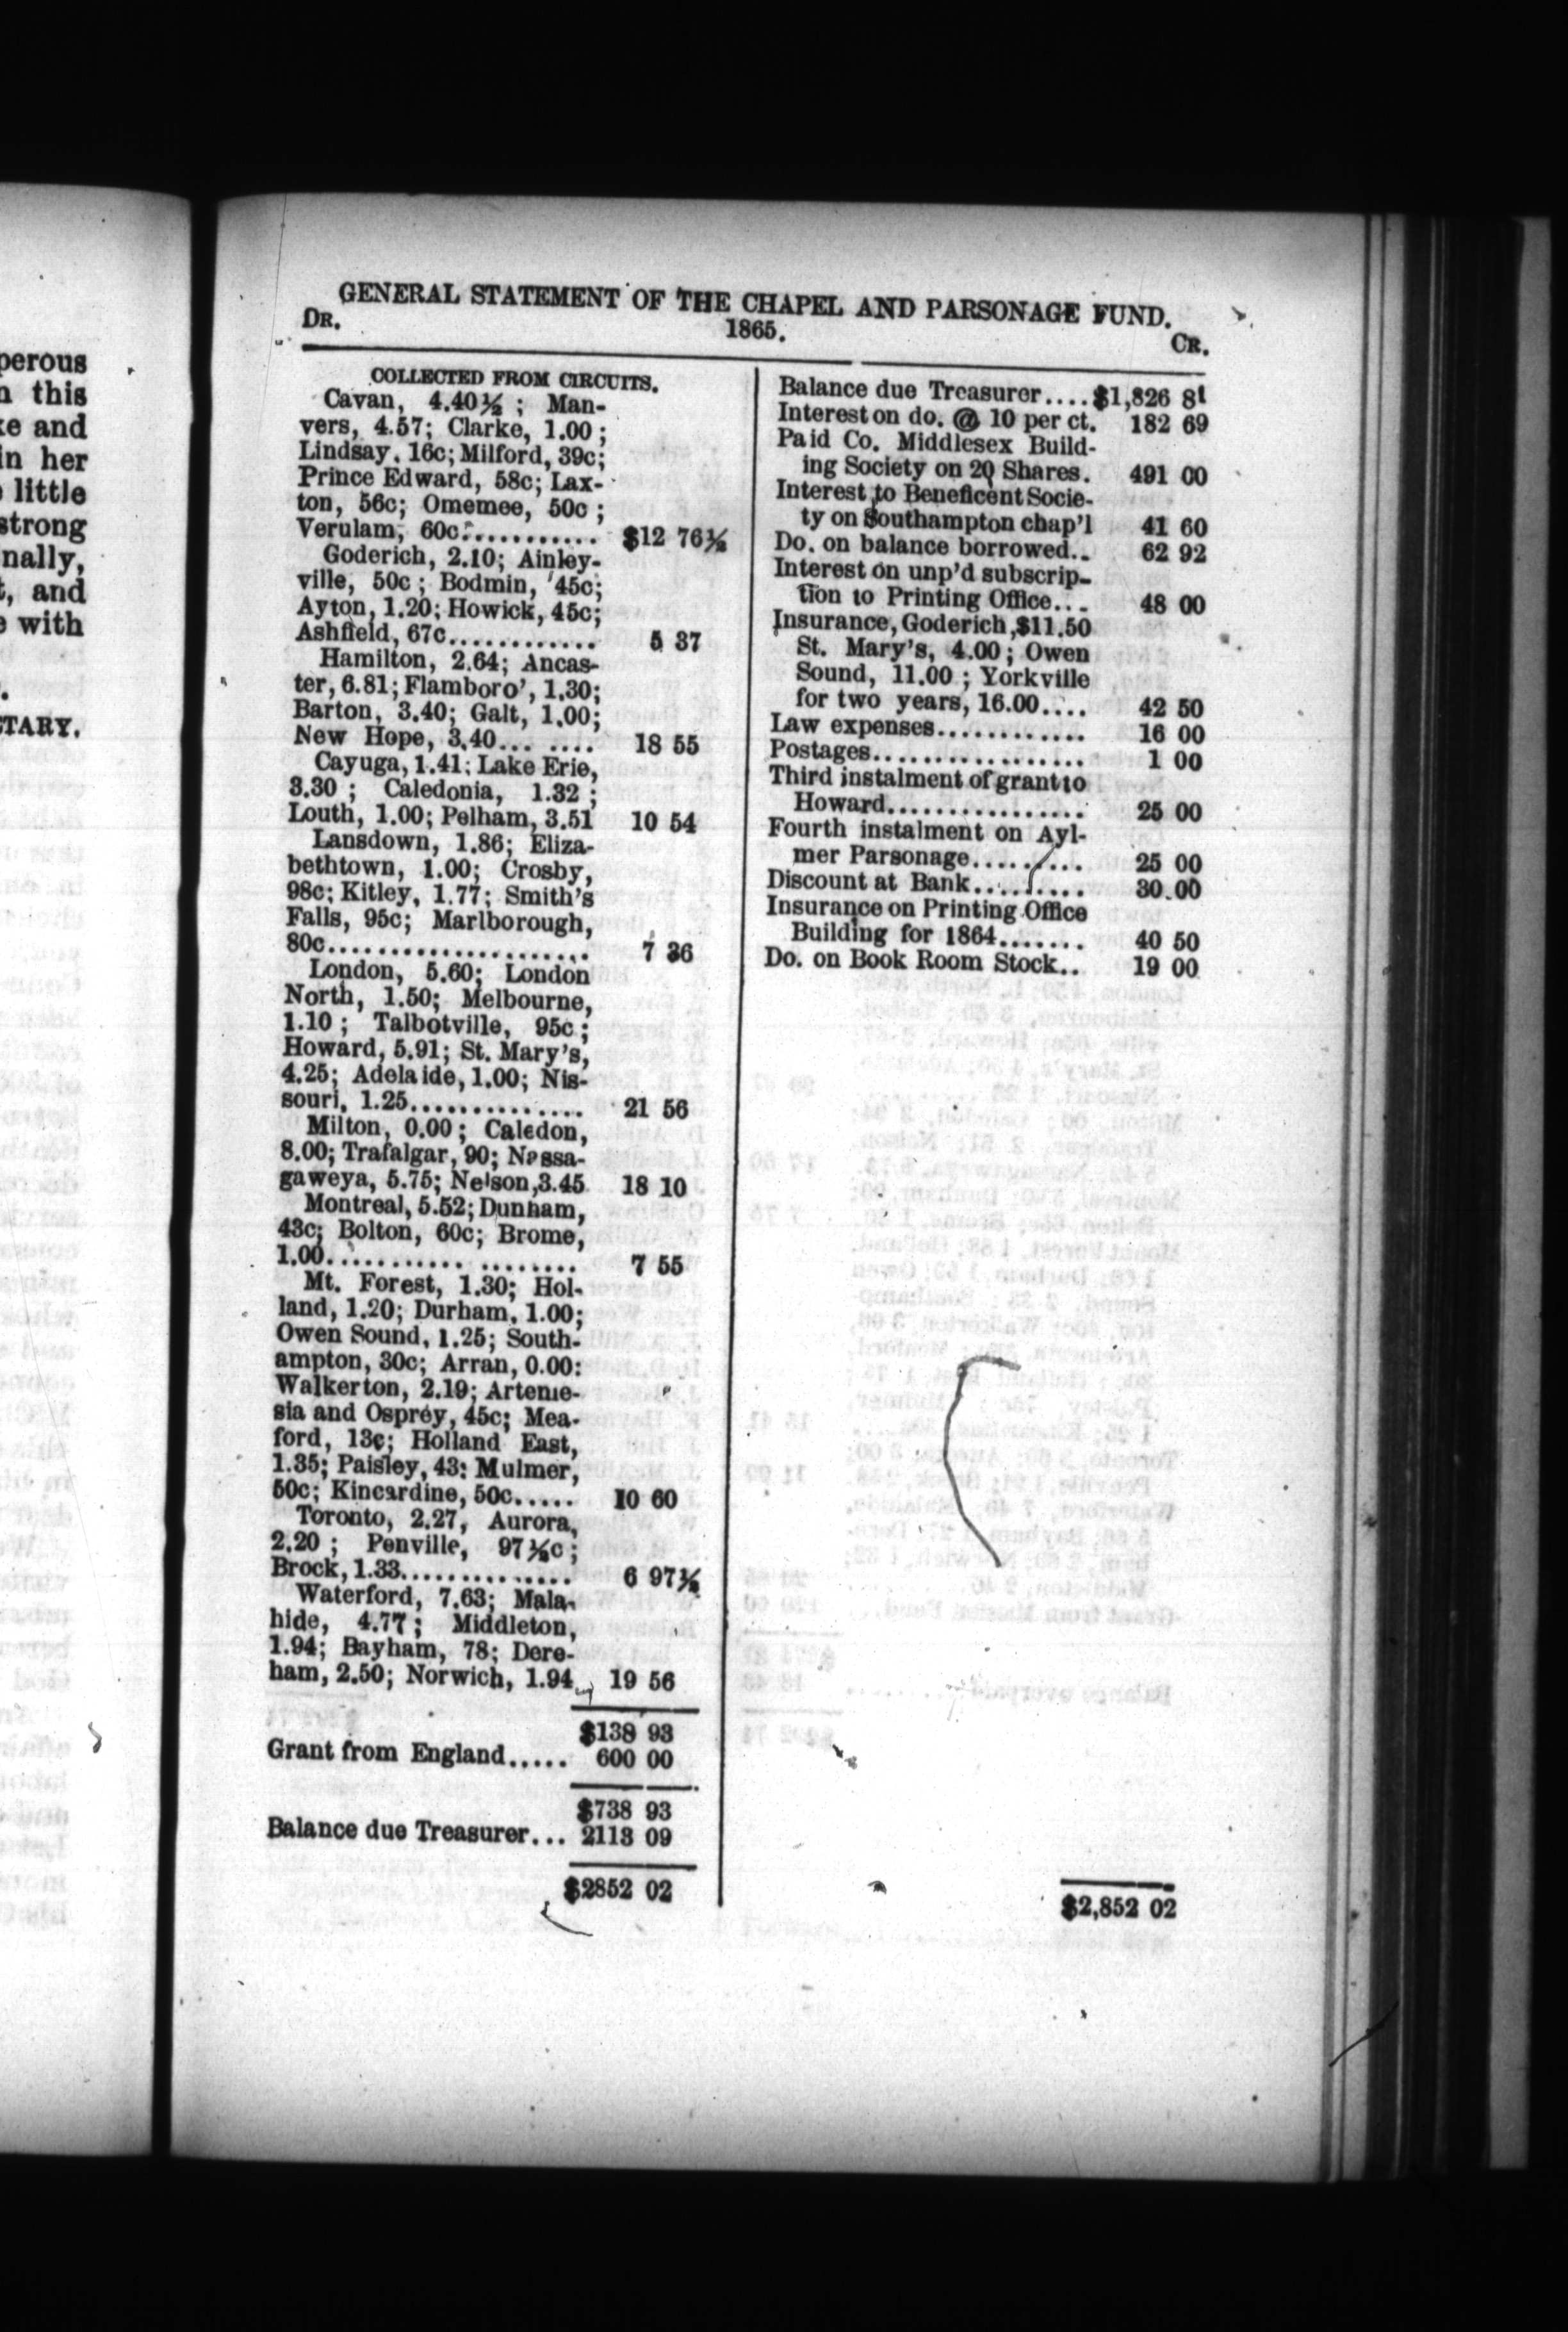 perous
n this
ke and
in her
little
strong
nally,
t, and
e with
TARY.
GENERAL STATEMENT OF THE CHAPEL AND PARSONAGE FUND.
DR.
1865.
CR.
COLLECTED FROM CIRCUITS.
Cavan, 4.40½ ; Man-
vers, 4.57; Clarke, 1.00 ;
Lindsay. 16c; Milford, 39c;
Prince Edward, 58c; Lax-
ton, 56c; Omemee, 50c ;
Verulam, 60c........... $12 76½
Goderich, 2.10; Ainley-
ville, 50c ; Bodmin, 45c;
Ayton, 1.20; Howick, 45c;
Ashfield, 67c............ 5 37
Hamilton, 2.64; Ancas-
ter, 6.81; Flamboro', 1.30;
Barton, 3.40; Galt, 1.00;
New Hope, 3.40... .... 18 55
Cayuga, 1.41; Lake Erie,
3.30 ; Caledonia, 1.32 ;
Louth, 1.00; Pelham, 3.51 10 54
Lansdown, 1.86; Eliza-
bethtown, 1.00; Crosby,
98c; Kitley, 1.77; Smith's
Falls, 95c; Marlborough,
80c..................... 7 36
London, 5.60; London
North, 1.50; Melbourne,
1.10 ; Talbotville, 95c ;
Howard, 5.91; St. Mary's,
4.25; Adelaide, 1.00; Nis-
souri, 1.25.............. 21 56
Milton, 0.00 ; Caledon,
8.00; Trafalgar, 90; Nassa-
gaweya, 5.75; Nelson, 3.45 18 10
Montreal, 5.52; Dunham,
43c; Bolton, 60c; Brome,
1.00........... ........ 7 55
Mt. Forest, 1.30; Hol-
land, 1.20; Durham, 1.00;
Owen Sound, 1.25; South-
ampton, 30c; Arran, 0.00:
Walkerton, 2.19; Arteme-
sia and Osprey, 45c; Mea-
ford, 13c; Holland East,
1.35; Paisley, 43: Mulmer,
50c; Kincardine, 50c..... 10 60
Toronto, 2.27, Aurora,
2.20 ; Penville, 97½c ;
Brock, 1.33.............. 6 97½
Waterford, 7.63; Mala-
hide, 4.77 ; Middleton,
1.94; Bayham, 78; Dere-
ham, 2.50; Norwich, 1.94 19 56
$138 93
Grant from England..... 600 00
$738 93
Balance due Treasurer... 2113 09
$2852 02
Balance due Treasurer....$1,826 81
Interest on do. @ 10 per ct. 182 69
Paid Co. Middlesex Build-
ing Society on 20 Shares. 491 00
Interest to Beneficent Socie-
ty on Southampton chap'l 41 60
Do. on balance borrowed.. 62 92
Interest on unp'd subscrip-
tion to Printing Office... 48 00
Insurance, Goderich, $11.50
St. Mary's, 4.00 ; Owen
Sound, 11.00 ; Yorkville
for two years, 16.00.... 42 50
Law expenses............ 16 00
Postages................. 1 00
Third instalment of grant to
Howard................ 25 00
Fourth instalment on Ayl-
mer Parsonage......... 25 00
Discount at Bank......... 30.00
Insurance on Printing Office
Building for 1864....... 40 50
Do. on Book Room Stock.. 19 00
$2,852 02